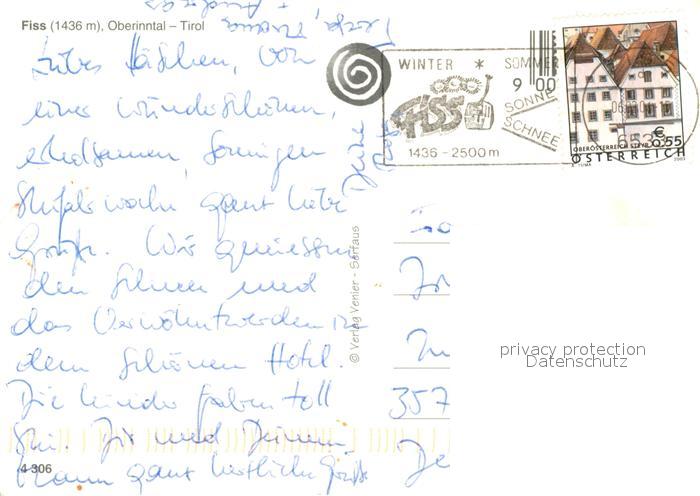 Fiss (1436 m), Oberinntal – Tirol
Liebes Häschen, von
einer wunderschönen,
erholsamen, sonnigen
Skifahrwoche ganz liebe
Grüße. Wir geniessen
den Schnee und
das Verwöhntwerden in
dem schönen Hotel.
Die Kinder fahren toll
Ski. Dir und Deinem
Mann ganz herzliche Grüße
Deine
+ Andreas
4 306
© Verlag Venier - Serfaus
WINTER * SOMMER
9 00
FISS
SONNE
SCHNEE
1436 - 2500 m
OBERÖSTERREICH STEYR
€ 0,55
ÖSTERREICH
2003
357
De
privacy protection
Datenschutz